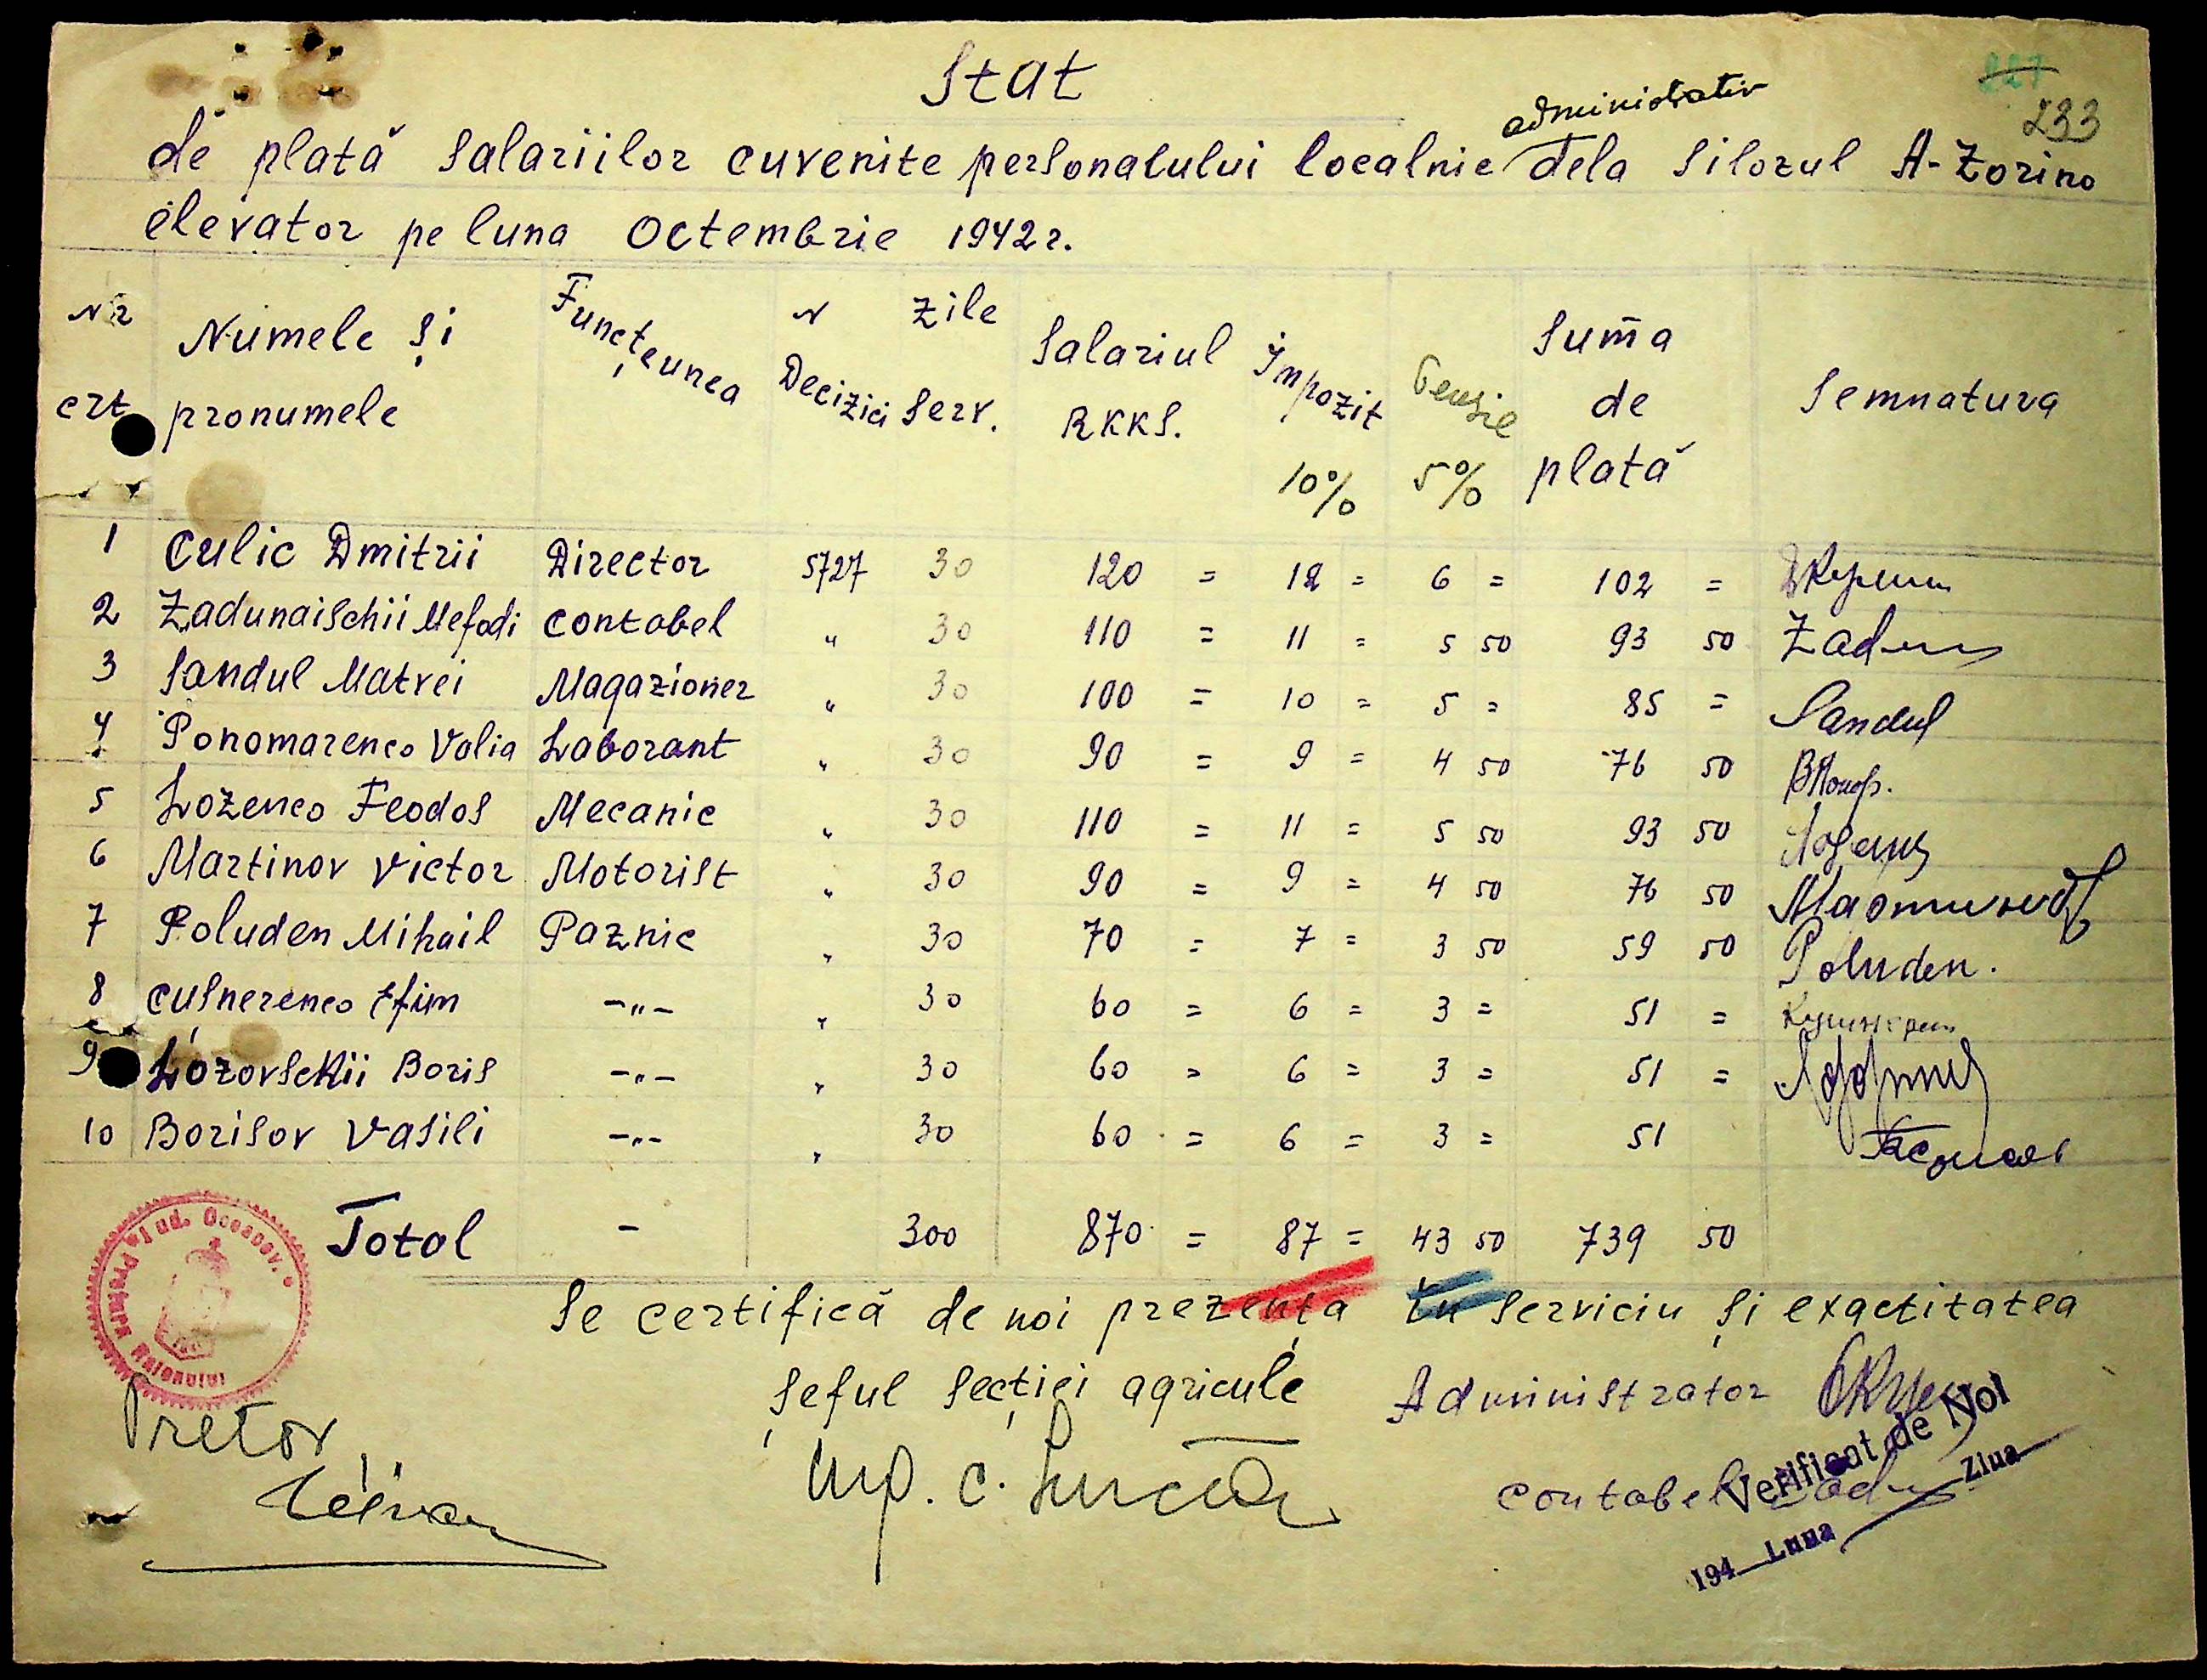 Stat
administrativ
227
233
de plată salariilor cuvenite personalului localnic dela silozul A-Zorino
elevator pe luna Octembrie 1942 r.
Nr crt Numele și pronumele Funcțeunea N Decizici Zile serv. Salariul RKKS. Impozit 10% Pensie 5% Suma de plată Semnatura
1 Culic Dmitrii Director 5727 30 120 = 12 = 6 = 102 =
2 Zadunaischii Mefodi Contabel " 30 110 = 11 = 5 50 93 50 Zadun
3 Sandul Matvei Magazioner " 30 100 = 10 = 5 = 85 = Sandul
4 Ponomarenco Valia Laborant " 30 90 = 9 = 4 50 76 50
5 Lozenco Feodos Mecanic " 30 110 = 11 = 5 50 93 50
6 Martinov Victor Motorist " 30 90 = 9 = 4 50 76 50
7 Poluden Mihail Paznic " 30 70 = 7 = 3 50 59 50 Poluden.
8 Cușnerenco Efim -"- " 30 60 = 6 = 3 = 51 =
9 Lozovsckii Boris -"- " 30 60 = 6 = 3 = 51 =
10 Borisov Vasili -"- " 30 60 = 6 = 3 = 51
Total - 300 870 = 87 = 43 50 739 50
Se certifică de noi prezența în serviciu și exactitatea
Jud. Oceacov. Pretura Raionului
Pretor
Șeful secției agricule
Administrator
contabel
Verificat de Noi
194 Luna Ziua